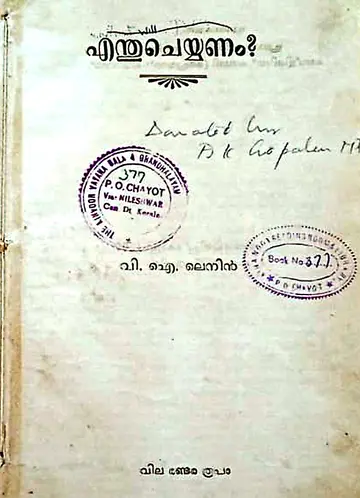 എന്തുചെയ്യണം?
Donated by
A K Gopalan MP
THE KINNOOR VAYANA SALA & GRANDHALAYAM
377
P. O. CHAYOT
Via: NILESHWAR
Can Dt. Kerala
വി. ഐ. ലെനിൻ
Book No 377
P O CHAYOT
വില രൂപാ